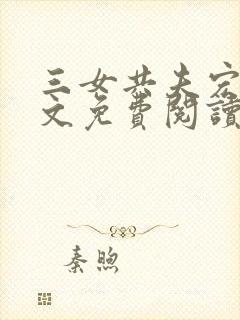 三女共夫完
文免費閱讀
秦煦